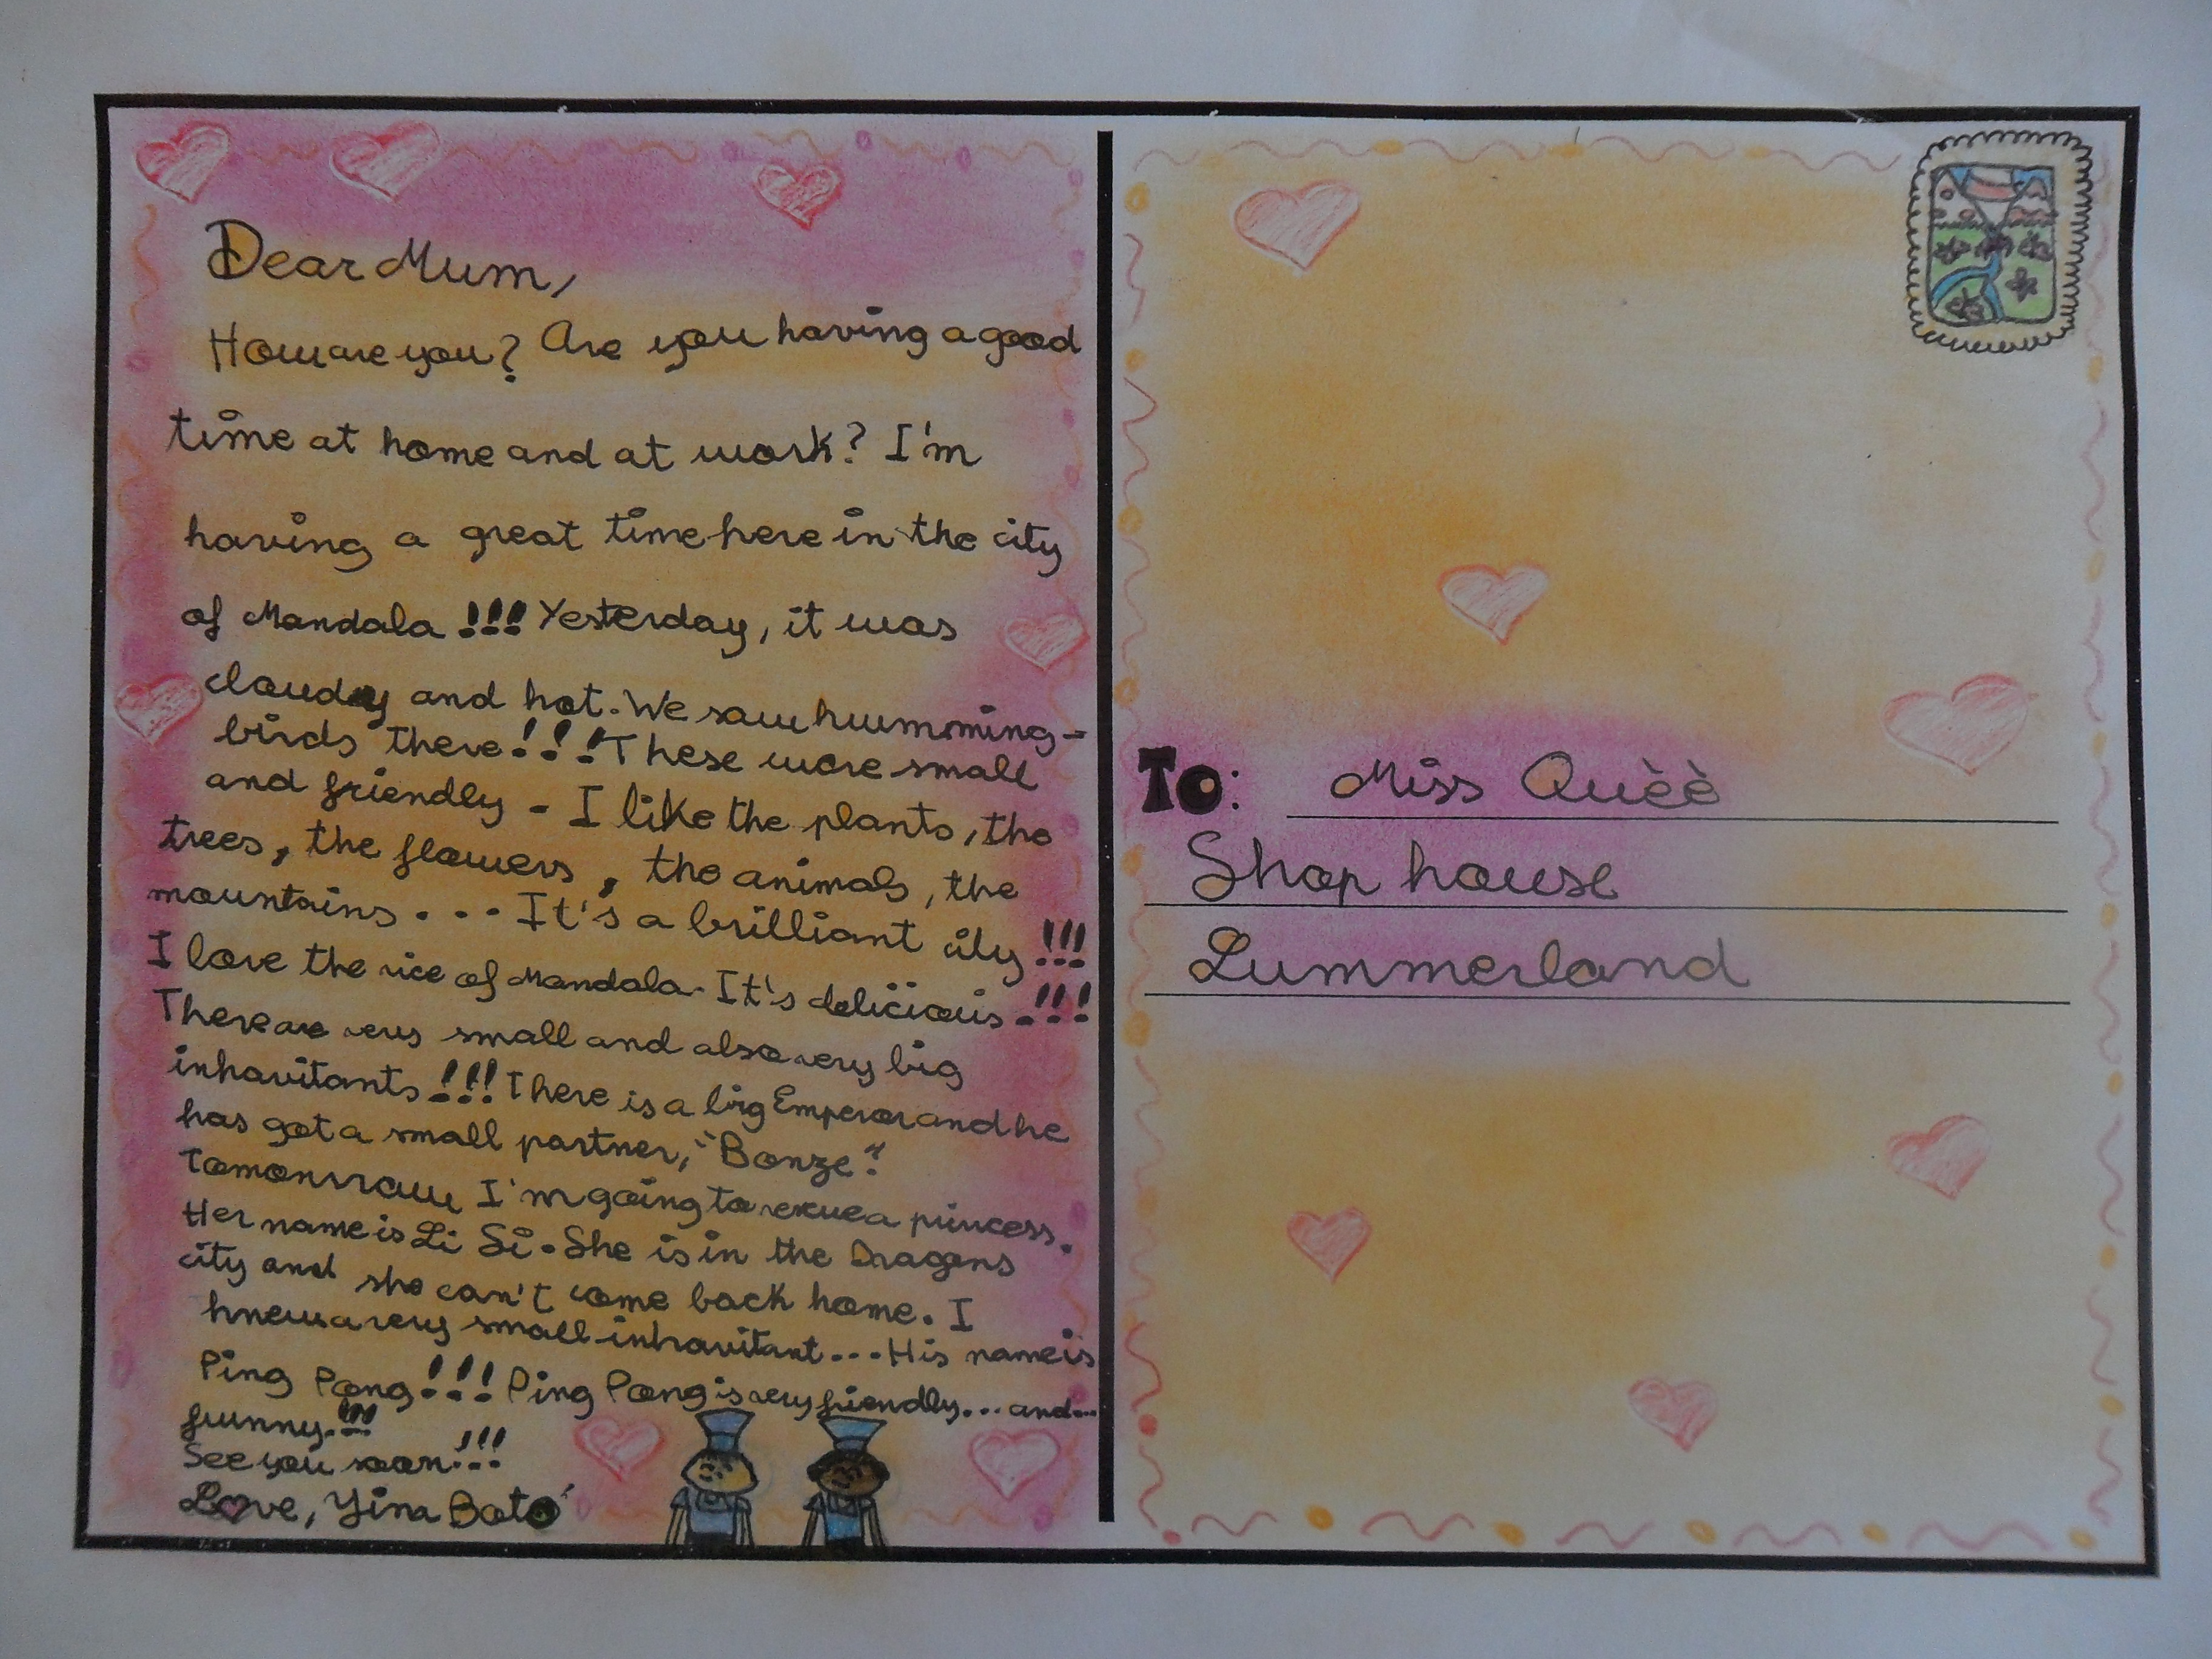 Dear Mum,
How are you? Are you having a good
time at home and at work? I'm
having a great time here in the city
of Mandala!!! Yesterday, it was
cloudy and hot. We saw humming-
birds there!!! These were small
and friendly. I like the plants, the
trees, the flowers, the animals, the
mountains... It's a brilliant city!!!
I love the rice of Mandala. It's delicious!!!
There are very small and also very big
inhavitants!!! There is a big Emperor and he
has got a small partner, "Bonze".
Tomorrow I'm going to rescue a princess.
Her name is Li Si. She is in the Dragons
city and she can't come back home. I
knew a very small inhavitant... His name is
Ping Pong!!! Ping Pong is very friendly... and...
funny.!!!
See you soon!!!
Love,
To: Miss Quèè
Shop house
Lummerland